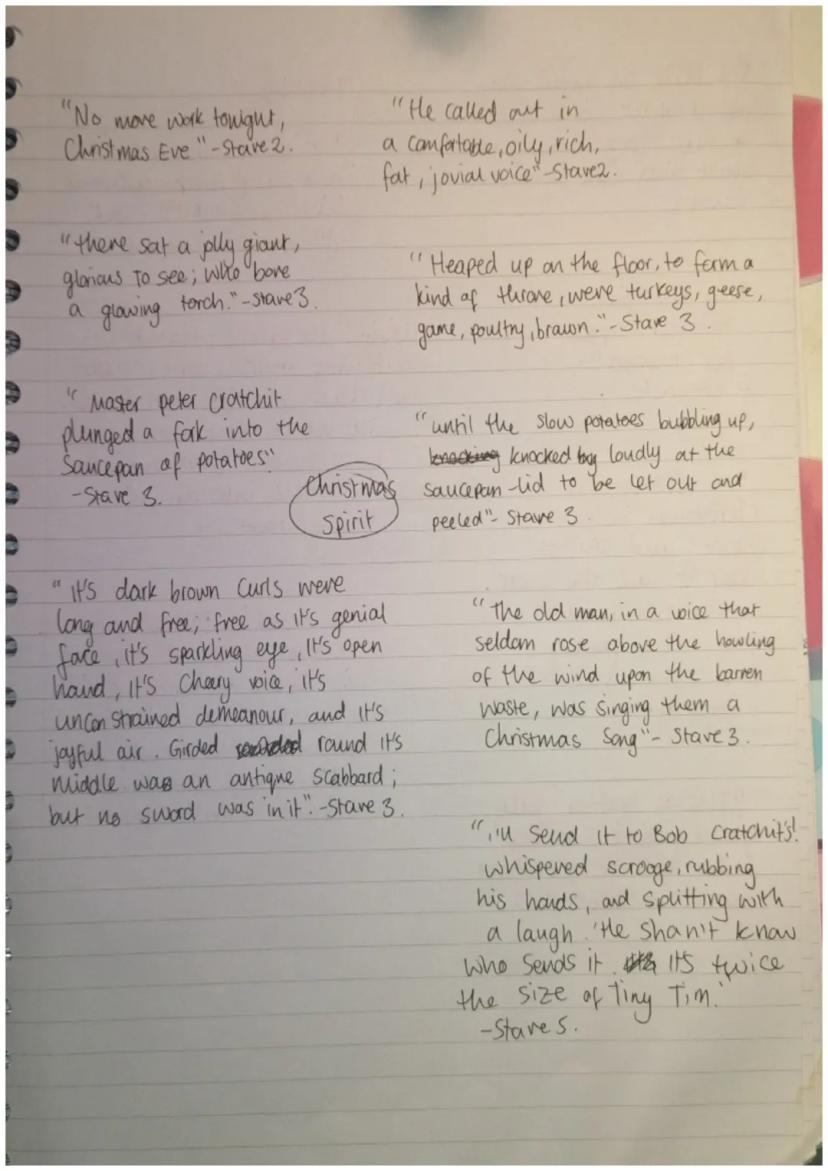 "No more work tonight,
Christmas Eve" - Stave 2.
"He called out in
a comfortable, oily, rich,
fat, jovial voice" - Stave 2.
"there sat a jolly giant,
glorious to see; who bore
a glowing torch." - Stave 3.
"Heaped up on the floor, to form a
kind of throne, were turkeys, geese,
game, poultry, brawn." - Stave 3.
"Master peter cratchit
plunged a fork into the
saucepan of potatoes"
- Stave 3.
"until the slow potatoes bubbling up,
knocking knocked loudly at the
saucepan-lid to be let out and
peeled" - Stave 3
Christmas
spirit
"It's dark brown curls were
long and free; free as it's genial
face, it's sparkling eye, it's open
hand, it's cheery voice, it's
unconstrained demeanour, and it's
joyful air. Girded round it's
middle was an antique scabbard;
but no sword was in it". - Stave 3.
"the old man, in a voice that
seldom rose above the howling
of the wind upon the barren
waste, was singing them a
Christmas song" - Stave 3.
"i'll send it to Bob Cratchit's!
whispered scrooge, rubbing
his hands, and splitting with
a laugh. 'He shan't know
who sends it. It's twice
the size of Tiny Tim.'
- Stave 5.